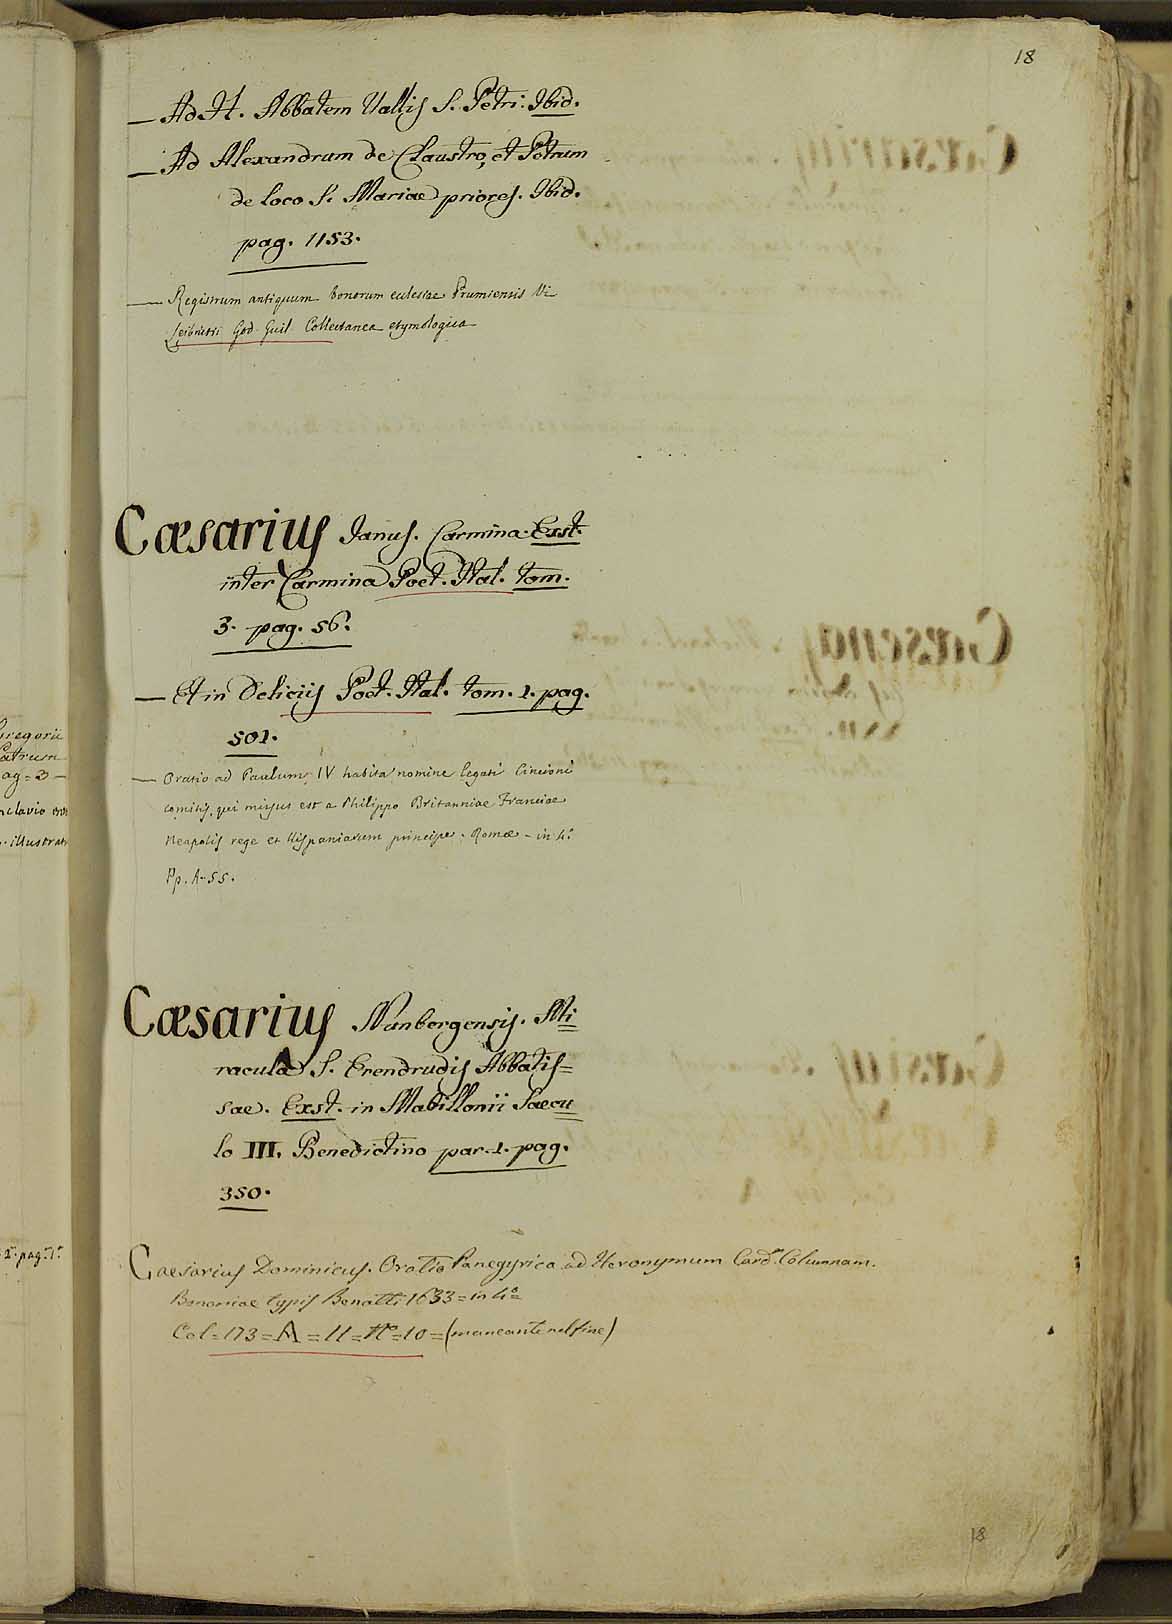 18
— Ad H. Abbatem Vallis S. Petri. Ibid.
— Ad Alexandrum de Claustro, et Petrum
de loco S. Mariae priores. Ibid.
pag. 1153.
— Registrum antiquum bonorum ecclesiae Prumiensis Vi
Leibnitii God. Guil. Collectanea etymologica
Cæsarius Janus. Carmina Exst.
inter Carmina Poet. Ital. tom.
3. pag. 56.
— Et in Deliciis Poet. Ital. tom. 1. pag.
501.
— Oratio ad Paulum IV habita nomine legati Cincioni
comitis, qui missus est a Philippo Britanniae Franciae
Neapolis rege et Hispaniarum principe. Romæ – in 4.º
Pp. A-55.
Cæsarius Nunbergensis. Mi
racula S. Erendrudis Abbatis=
sae. Exst. in Mabillonii Saecu
lo III. Benedictino par. 1. pag.
350.
Caesarius Dominicus. Oratio Panegyrica ad Heronymum Card. Columnam.
Bononiae typis Benatti 1633 = in 4º
Col = 173 = A = 11 = Nº = 10 = (mancante nel fine)
18
Gregorii
Patrum
ag = 2 –
nclavio
illustrat
2ª pag. 1ª